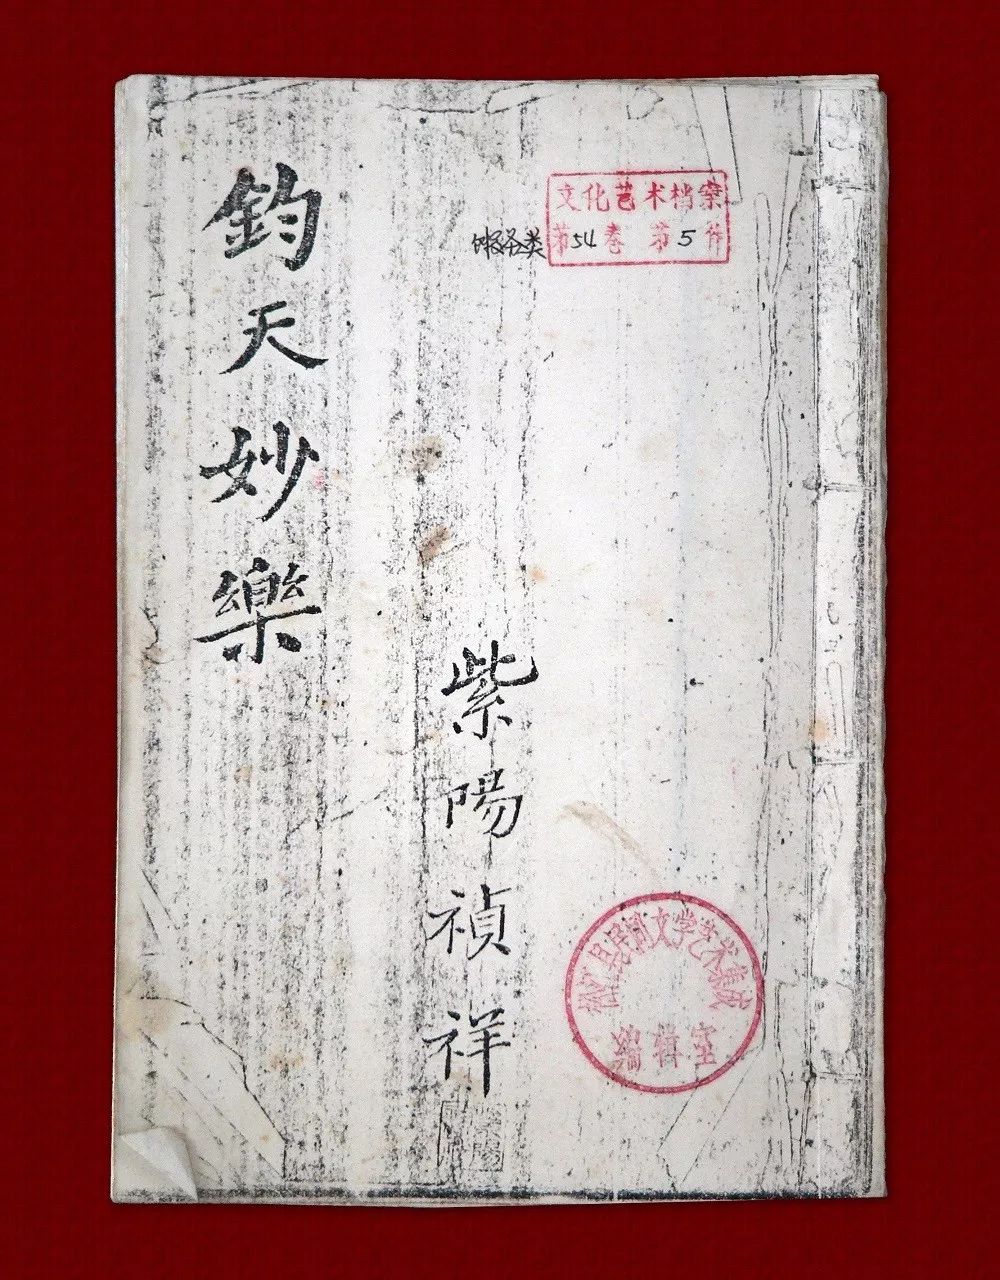 鈞天妙樂
紫陽禎祥
文化艺术档案
第54卷 第5件
县民间文学艺术集成
编辑室